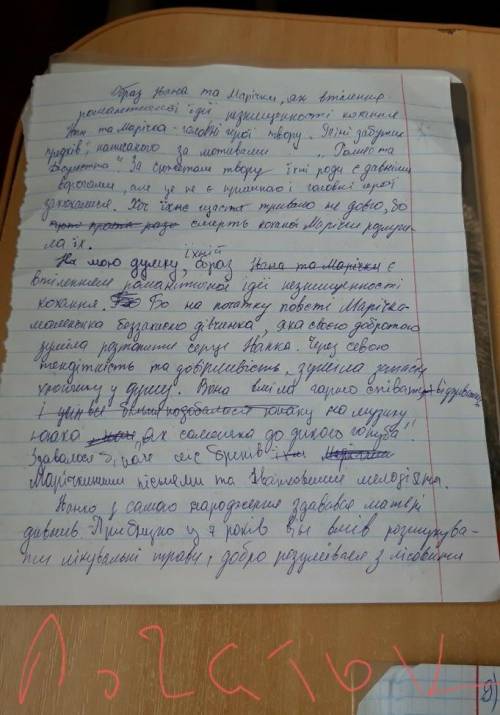 Образ Івана та Марічки, як втілення
романтичної ідеї незнищенності кохання
Іван та Марічка - головні герої твору. "Тіні забутих
предків", написаного за мотивами "Ромео та
Джульєтта". За сюжетом твору їхні роди є давніми
ворогами, але це не є причиною і головні герої
закохалися. Хоч їхнє щастя тривало не довго, бо
смерть коханої Марічки розлучи-
ла їх.
На мою думку, їхній образ Івана та Марічки є
втіленням романтичної ідеї незнищенності
кохання. Бо на початку повісті Марічка-
маленька беззахисна дівчинка, яка своєю добротою
зуміла розтопити серце Івана. Через свою
тендітність та добрливість, зуміла запасти
хлопчику у душу. Вона вміла гарно співати відгукувалась
і юнаку на музику
юнака "як самичка до дикого голуба".
Здавалося б, наче ліс бринів
Марічкиними піснями та Івановими мелодіями.
Іванко з самого народження здавався матері
дивним. Приблизно із 7 років він вмів розшукува-
ти лікувальні трави, добре розумівся з лісовими
Початок